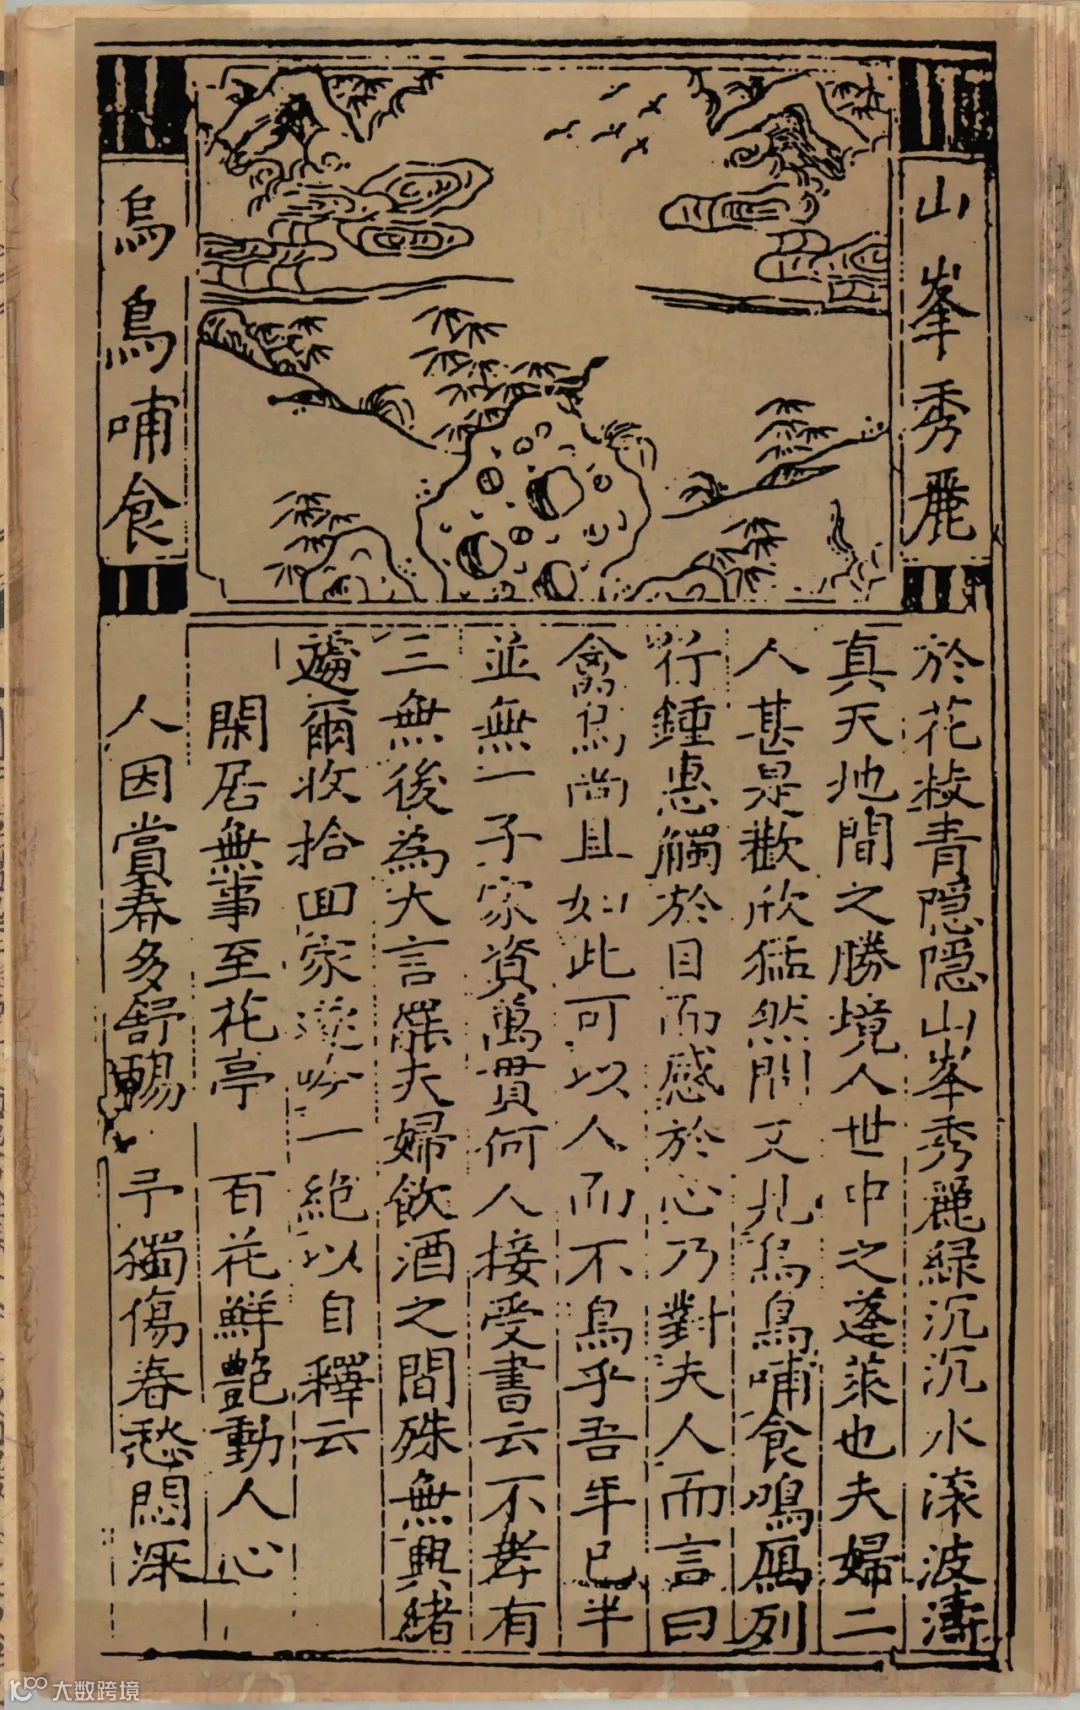 山峯秀麗
烏鳥哺食
於花枝青隱隱山峯秀麗緑沉沉水滚波濤
真天地間之勝境人世中之蓬萊也夫婦二
人甚是歡欣猛然間又見烏鳥哺食鳴鴈列
行鍾惠觸於目而感於心乃對夫人而言曰
禽鳥尚且如此可以人而不鳥乎吾年已半
並無一子家資萬貫何人接受書云不孝有
三無後為大言罷夫婦飲酒之間殊無興緒
遂爾收拾回家遂吟一絶以自釋云
閑居無事至花亭 百花鮮艷動人心
人因賞春多舒暢 予獨傷春愁悶深
大数跨境